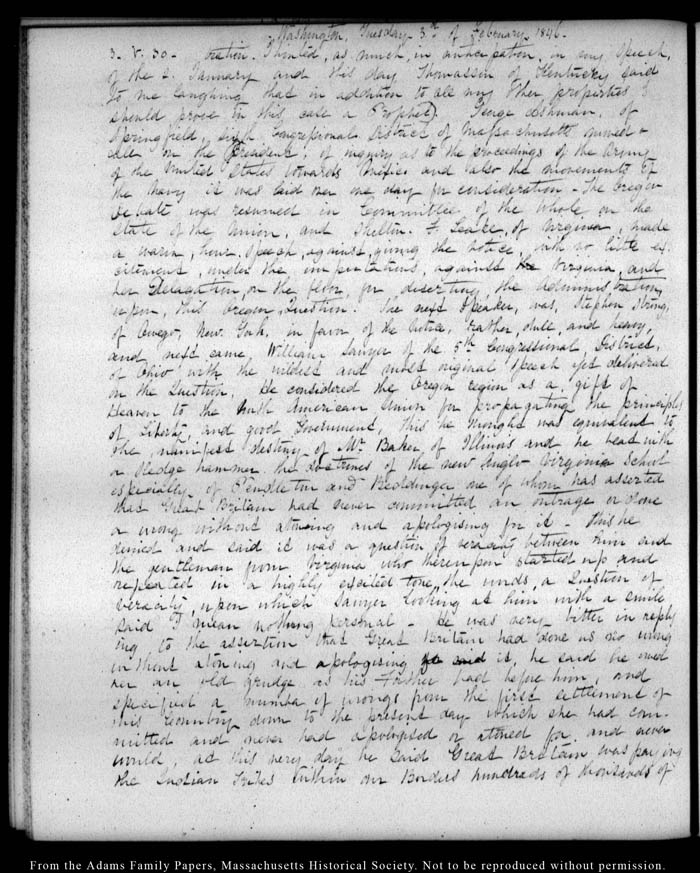 Washington, Tuesday 3d of February 1846.
3. V. 30 - oration. I hinted, as much, in anticipation, in my Speech,
of the 2. January and this day Thomasson of Kentucky said
to me laughing that in addition to all my other properties I
should prove in this case a Prophet) George Ashmun, of
Springfield, sixth Congressional District of Massachusetts moved a
call on the President, of inquiry as to the proceedings of the Army
of the United States towards Mexico and also the movements of
the Navy it was laid over one day for consideration - The Oregon
debate was resumed in Committee of the Whole on the
state of the Union, and Shelton F. Leake, of Virginia, made
a warm, hour, Speech, against, giving the notice, with no little ex-
citement, under the, imputations, against the Virginia, and
her Delegation, on the floor, for deserting, the Administration,
upon, this Oregon, Question. The next Speaker, was, Stephen Strong,
of Owego, New York, in favor of the notice, rather, dull, and heavy,
and next came, William Sawyer of the 5th Congressional, District,
of Ohio with the wildest and most original Speech yet delivered
on the Question. He considered the Oregon region as a gift of
Heaven to the North American Union for propagating the principles
of Liberty, and good Government, this he thought was equivalent to
the, manifest destiny of Mr Baker, of Illinois and he beat with
a sledge hammer the doctrines of the new Anglo Virginia School
especially of Pendleton and Bedinger one of whom has asserted
that Great Britain had never committed an outrage or done
a wrong without atoning and apologising for it - This he
denied and said it was a question of veracity between him and
the gentleman from Virginia who thereupon started up and
repeated in a highly excited tone, the words, a Question of
veracity, upon which Sawyer looking at him with a smile
said I mean nothing personal - He was very bitter in reply
ing to the assertion that Great Britain had done us no wrong
without atoning and apologising it, he said he owed
her an old grudge as his Father had before him, and
specified a number of wrongs from the first settlement of
this Country down to the present day which she had com-
mitted and never had apologised or atoned for and never
would, at this very day he said Great Britain was paying
the Indian Tribes within our Borders hundreds of thousands of
From the Adams Family Papers, Massachusetts Historical Society. Not to be reproduced without permission.